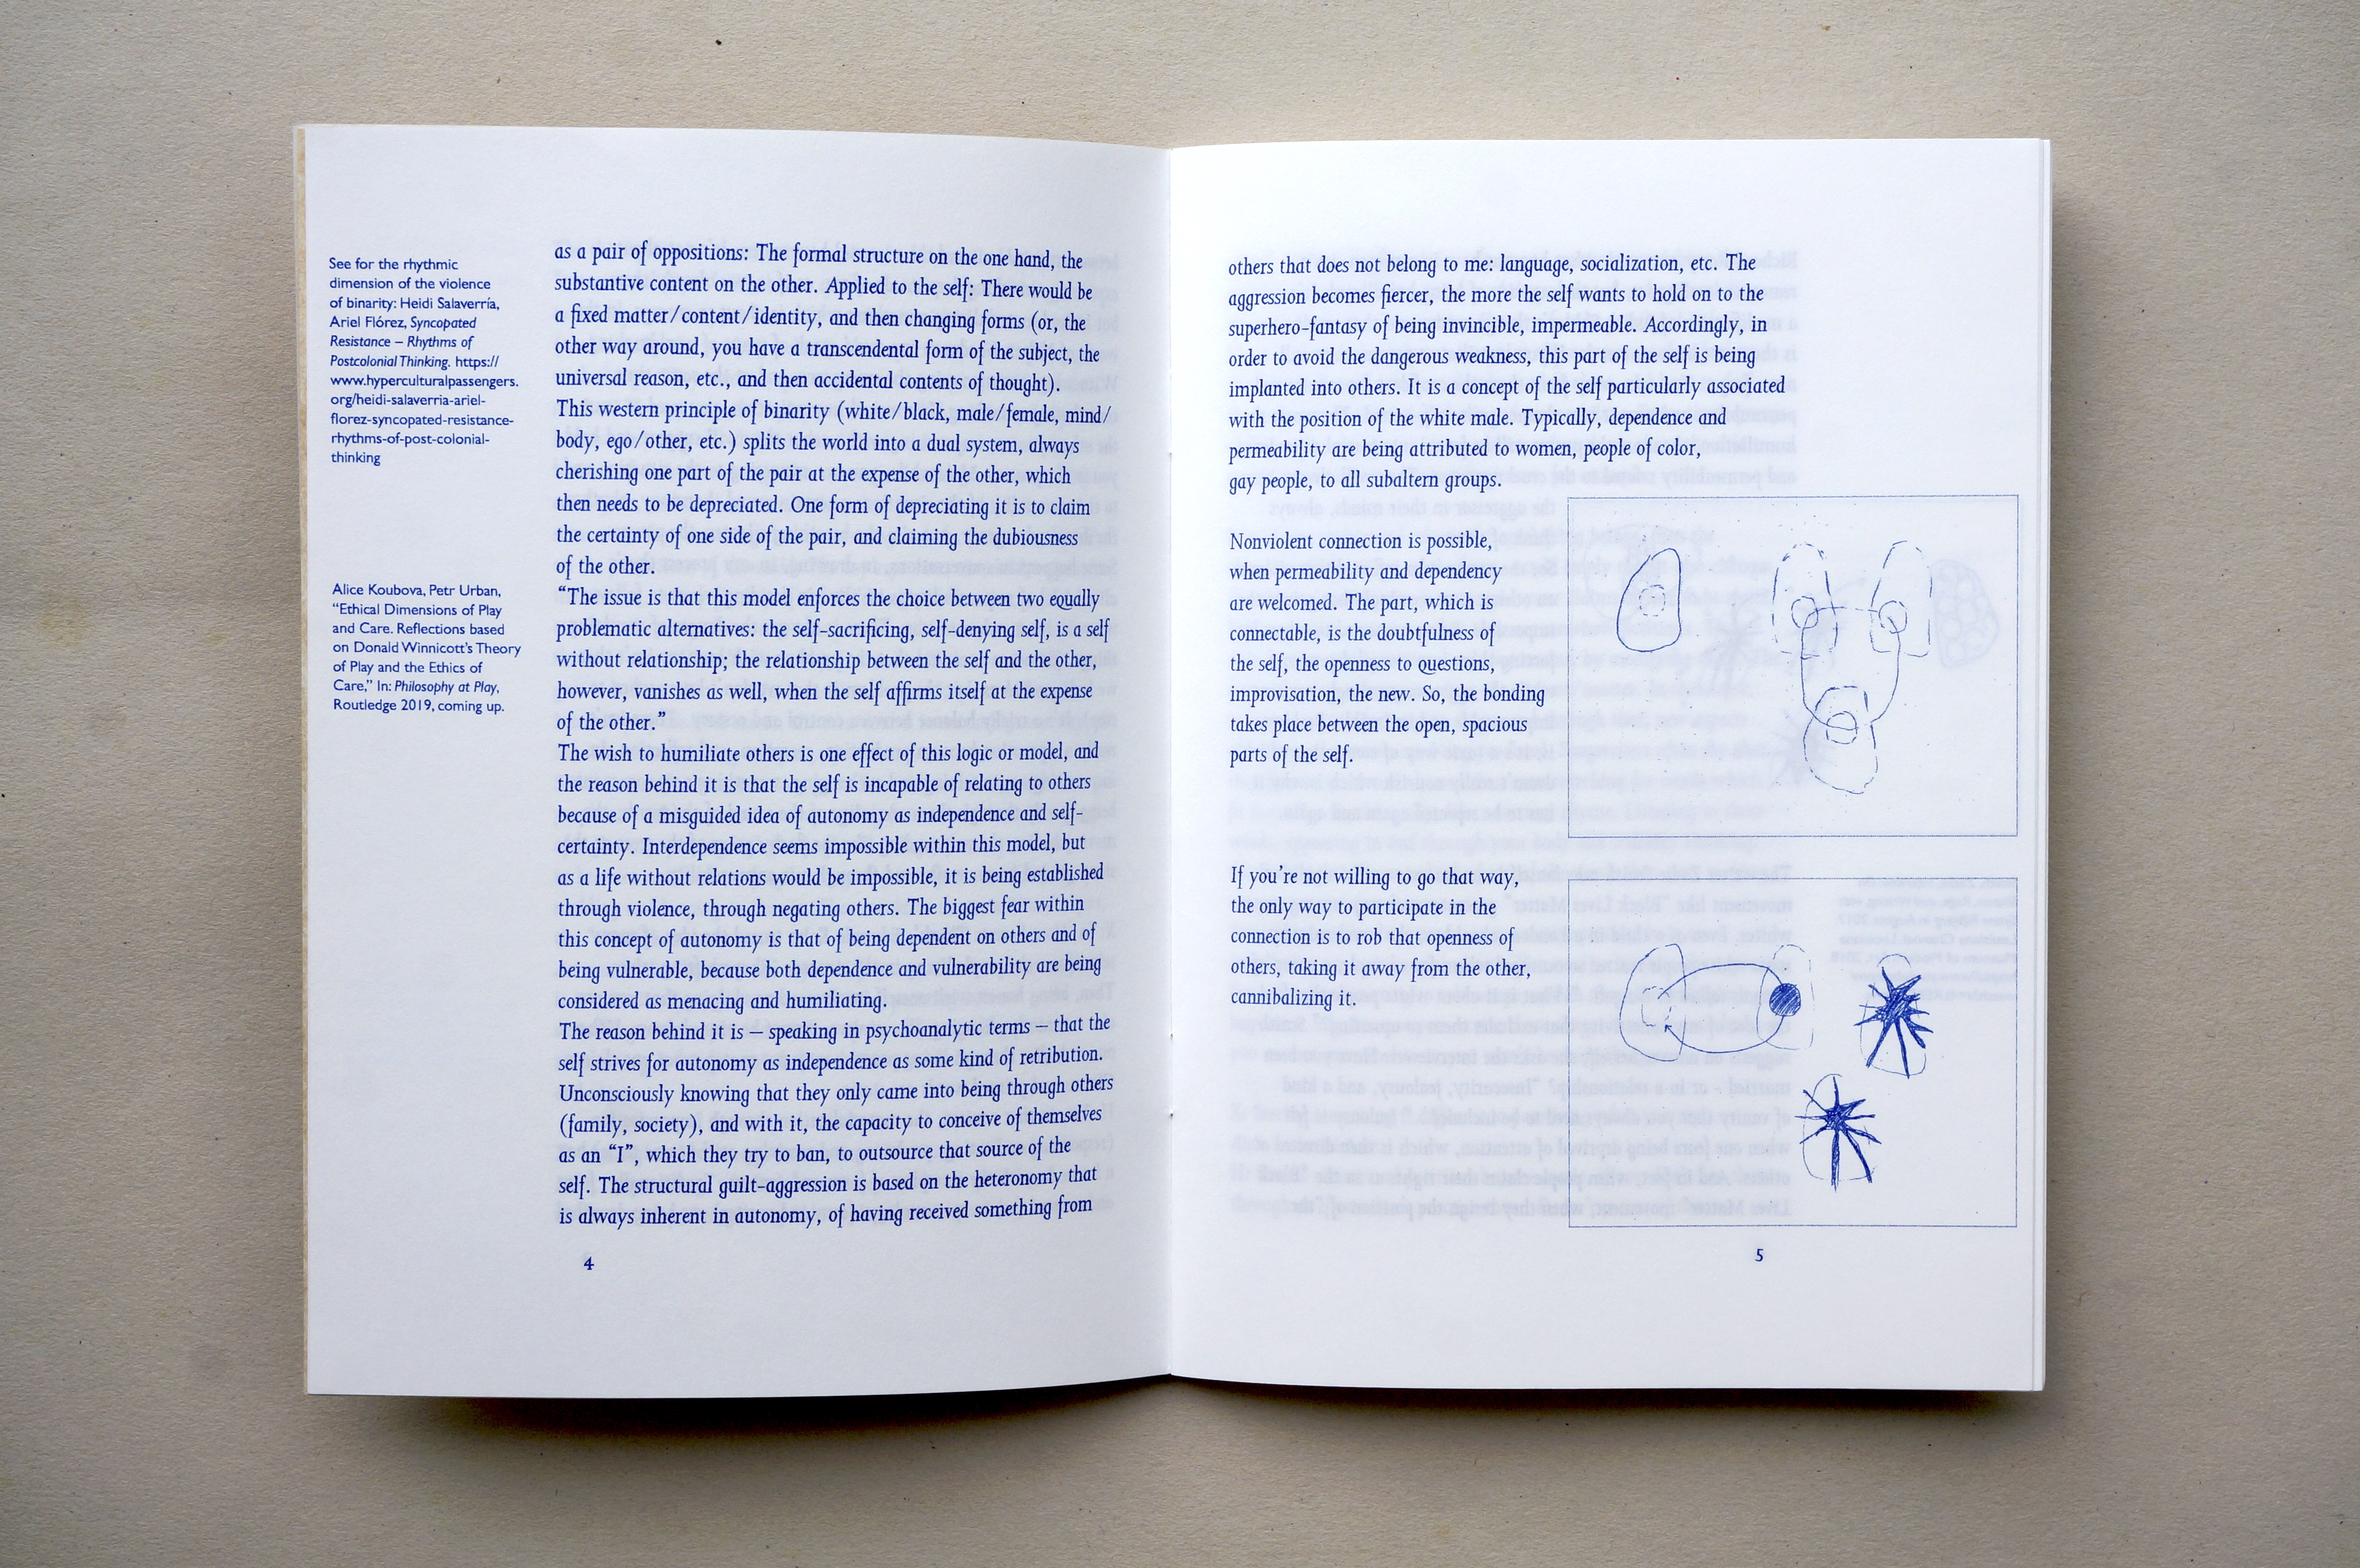 See for the rhythmic
dimension of the violence
of binarity: Heidi Salaverría,
Ariel Flórez, Syncopated
Resistance – Rhythms of
Postcolonial Thinking. https://
www.hyperculturalpassengers.
org/heidi-salaverria-ariel-
florez-syncopated-resistance-
rhythms-of-post-colonial-
thinking
Alice Koubova, Petr Urban,
“Ethical Dimensions of Play
and Care. Reflections based
on Donald Winnicott’s Theory
of Play and the Ethics of
Care,” In: Philosophy at Play,
Routledge 2019, coming up.
as a pair of oppositions: The formal structure on the one hand, the
substantive content on the other. Applied to the self: There would be
a fixed matter/content/identity, and then changing forms (or, the
other way around, you have a transcendental form of the subject, the
universal reason, etc., and then accidental contents of thought).
This western principle of binarity (white/black, male/female, mind/
body, ego/other, etc.) splits the world into a dual system, always
cherishing one part of the pair at the expense of the other, which
then needs to be depreciated. One form of depreciating it is to claim
the certainty of one side of the pair, and claiming the dubiousness
of the other.
“The issue is that this model enforces the choice between two equally
problematic alternatives: the self-sacrificing, self-denying self, is a self
without relationship; the relationship between the self and the other,
however, vanishes as well, when the self affirms itself at the expense
of the other.”
The wish to humiliate others is one effect of this logic or model, and
the reason behind it is that the self is incapable of relating to others
because of a misguided idea of autonomy as independence and self-
certainty. Interdependence seems impossible within this model, but
as a life without relations would be impossible, it is being established
through violence, through negating others. The biggest fear within
this concept of autonomy is that of being dependent on others and of
being vulnerable, because both dependence and vulnerability are being
considered as menacing and humiliating.
The reason behind it is – speaking in psychoanalytic terms – that the
self strives for autonomy as independence as some kind of retribution.
Unconsciously knowing that they only came into being through others
(family, society), and with it, the capacity to conceive of themselves
as an “I”, which they try to ban, to outsource that source of the
self. The structural guilt-aggression is based on the heteronomy that
is always inherent in autonomy, of having received something from
4
others that does not belong to me: language, socialization, etc. The
aggression becomes fiercer, the more the self wants to hold on to the
superhero-fantasy of being invincible, impermeable. Accordingly, in
order to avoid the dangerous weakness, this part of the self is being
implanted into others. It is a concept of the self particularly associated
with the position of the white male. Typically, dependence and
permeability are being attributed to women, people of color,
gay people, to all subaltern groups.
Nonviolent connection is possible,
when permeability and dependency
are welcomed. The part, which is
connectable, is the doubtfulness of
the self, the openness to questions,
improvisation, the new. So, the bonding
takes place between the open, spacious
parts of the self.
If you’re not willing to go that way,
the only way to participate in the
connection is to rob that openness of
others, taking it away from the other,
cannibalizing it.
5